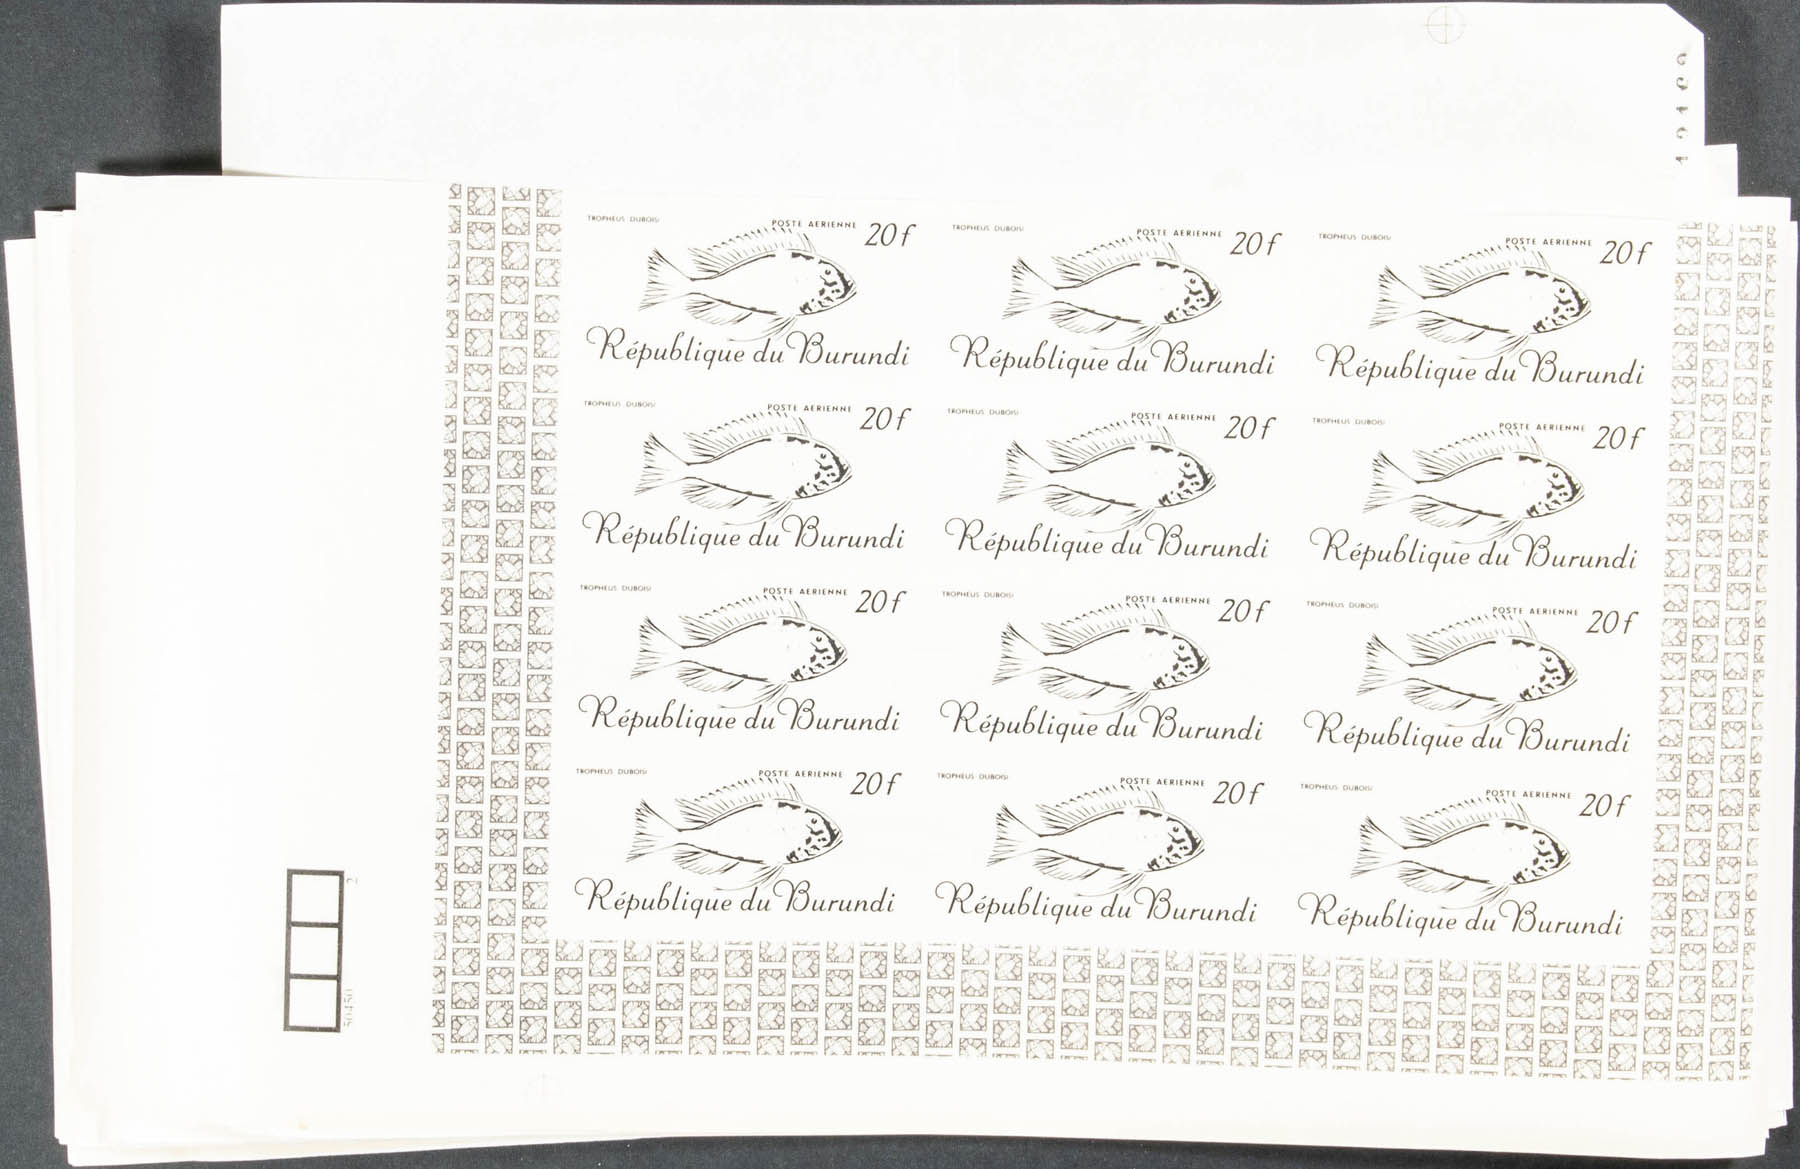 TROPHEUS DUBOISI POSTE AERIENNE 20 f
République du Burundi
TROPHEUS DUBOISI POSTE AERIENNE 20 f
République du Burundi
TROPHEUS DUBOISI POSTE AERIENNE 20 f
République du Burundi
TROPHEUS DUBOISI POSTE AERIENNE 20 f
République du Burundi
TROPHEUS DUBOISI POSTE AERIENNE 20 f
République du Burundi
TROPHEUS DUBOISI POSTE AERIENNE 20 f
République du Burundi
TROPHEUS DUBOISI POSTE AERIENNE 20 f
République du Burundi
TROPHEUS DUBOISI POSTE AERIENNE 20 f
République du Burundi
TROPHEUS DUBOISI POSTE AERIENNE 20 f
République du Burundi
TROPHEUS DUBOISI POSTE AERIENNE 20 f
République du Burundi
TROPHEUS DUBOISI POSTE AERIENNE 20 f
République du Burundi
TROPHEUS DUBOISI POSTE AERIENNE 20 f
République du Burundi
2
50450